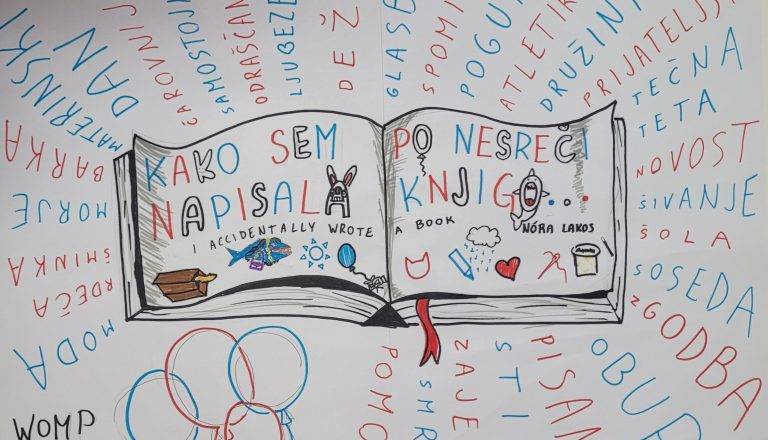 MATERINSKI
DAN
ČAROVNIJ
SAMOSTOJ
ODRAŠČAN
LJUBEZE
DEŽ
GLASB
SPOMI
POGU
ATLETIK
DRUŽIN
PRIJATELJS
TEČNA
TETA
NOVOST
ŠIVANJE
ŠOLA
SOSEDA
ZGODBA
OBUP
PISAN
STI
ZAJE
SMR
POMO
BARKA
MORJE
ŠMINKA
RDEČA
MODA
KAKO SEM
NAPISALA
I ACCIDENTALLY WROTE
PO NESREČI
KNJIGO...
A BOOK
NÓRA LAKOS
WOMP